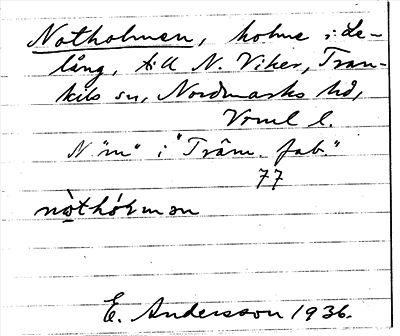 Notholmen, holme i Le-
lång, till N. Viker, Tran-
kils sn, Nordmarks hd,
Vrml l.
N "m" i "Träm. fab."
77
nòthó̧lmən
E. Andersson 1936.